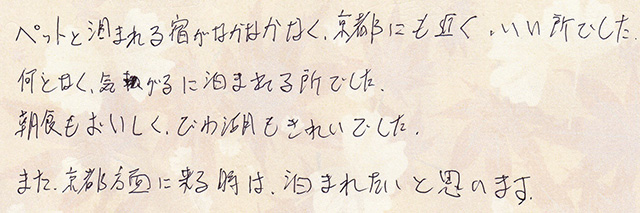 ペットと泊まれる宿がなかなかなく、京都にも近く、いい所でした。
何となく、気がるに泊まれる所でした。
朝食もおいしく、びわ湖もきれいでした。
また、京都方面に来る時は、泊まれたいと思のます。